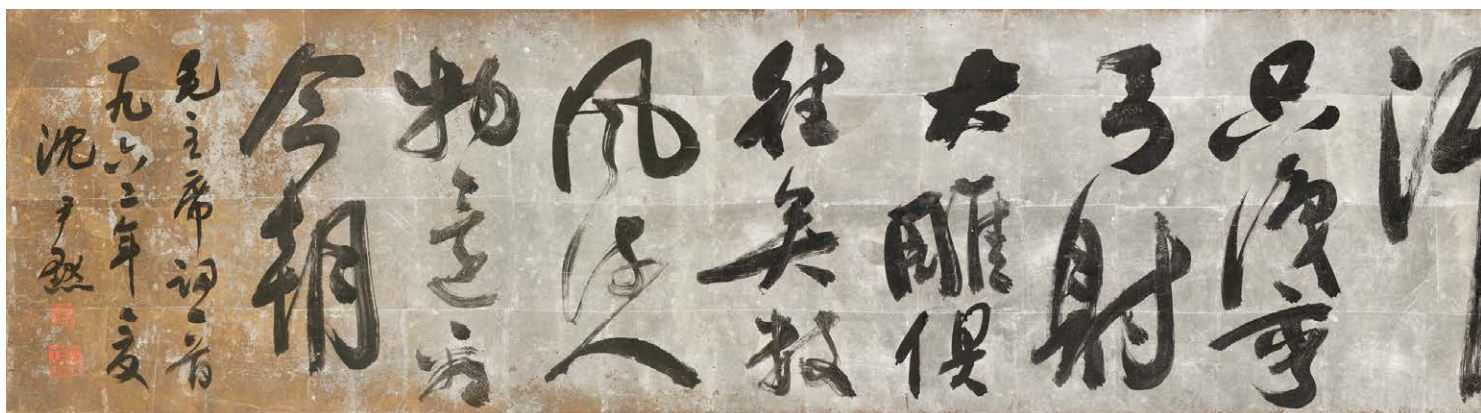 只識彎
弓射
大雕俱
往矣數
風流人
物還看
今朝
毛主席詞一首
一九六二年夏
沈尹默